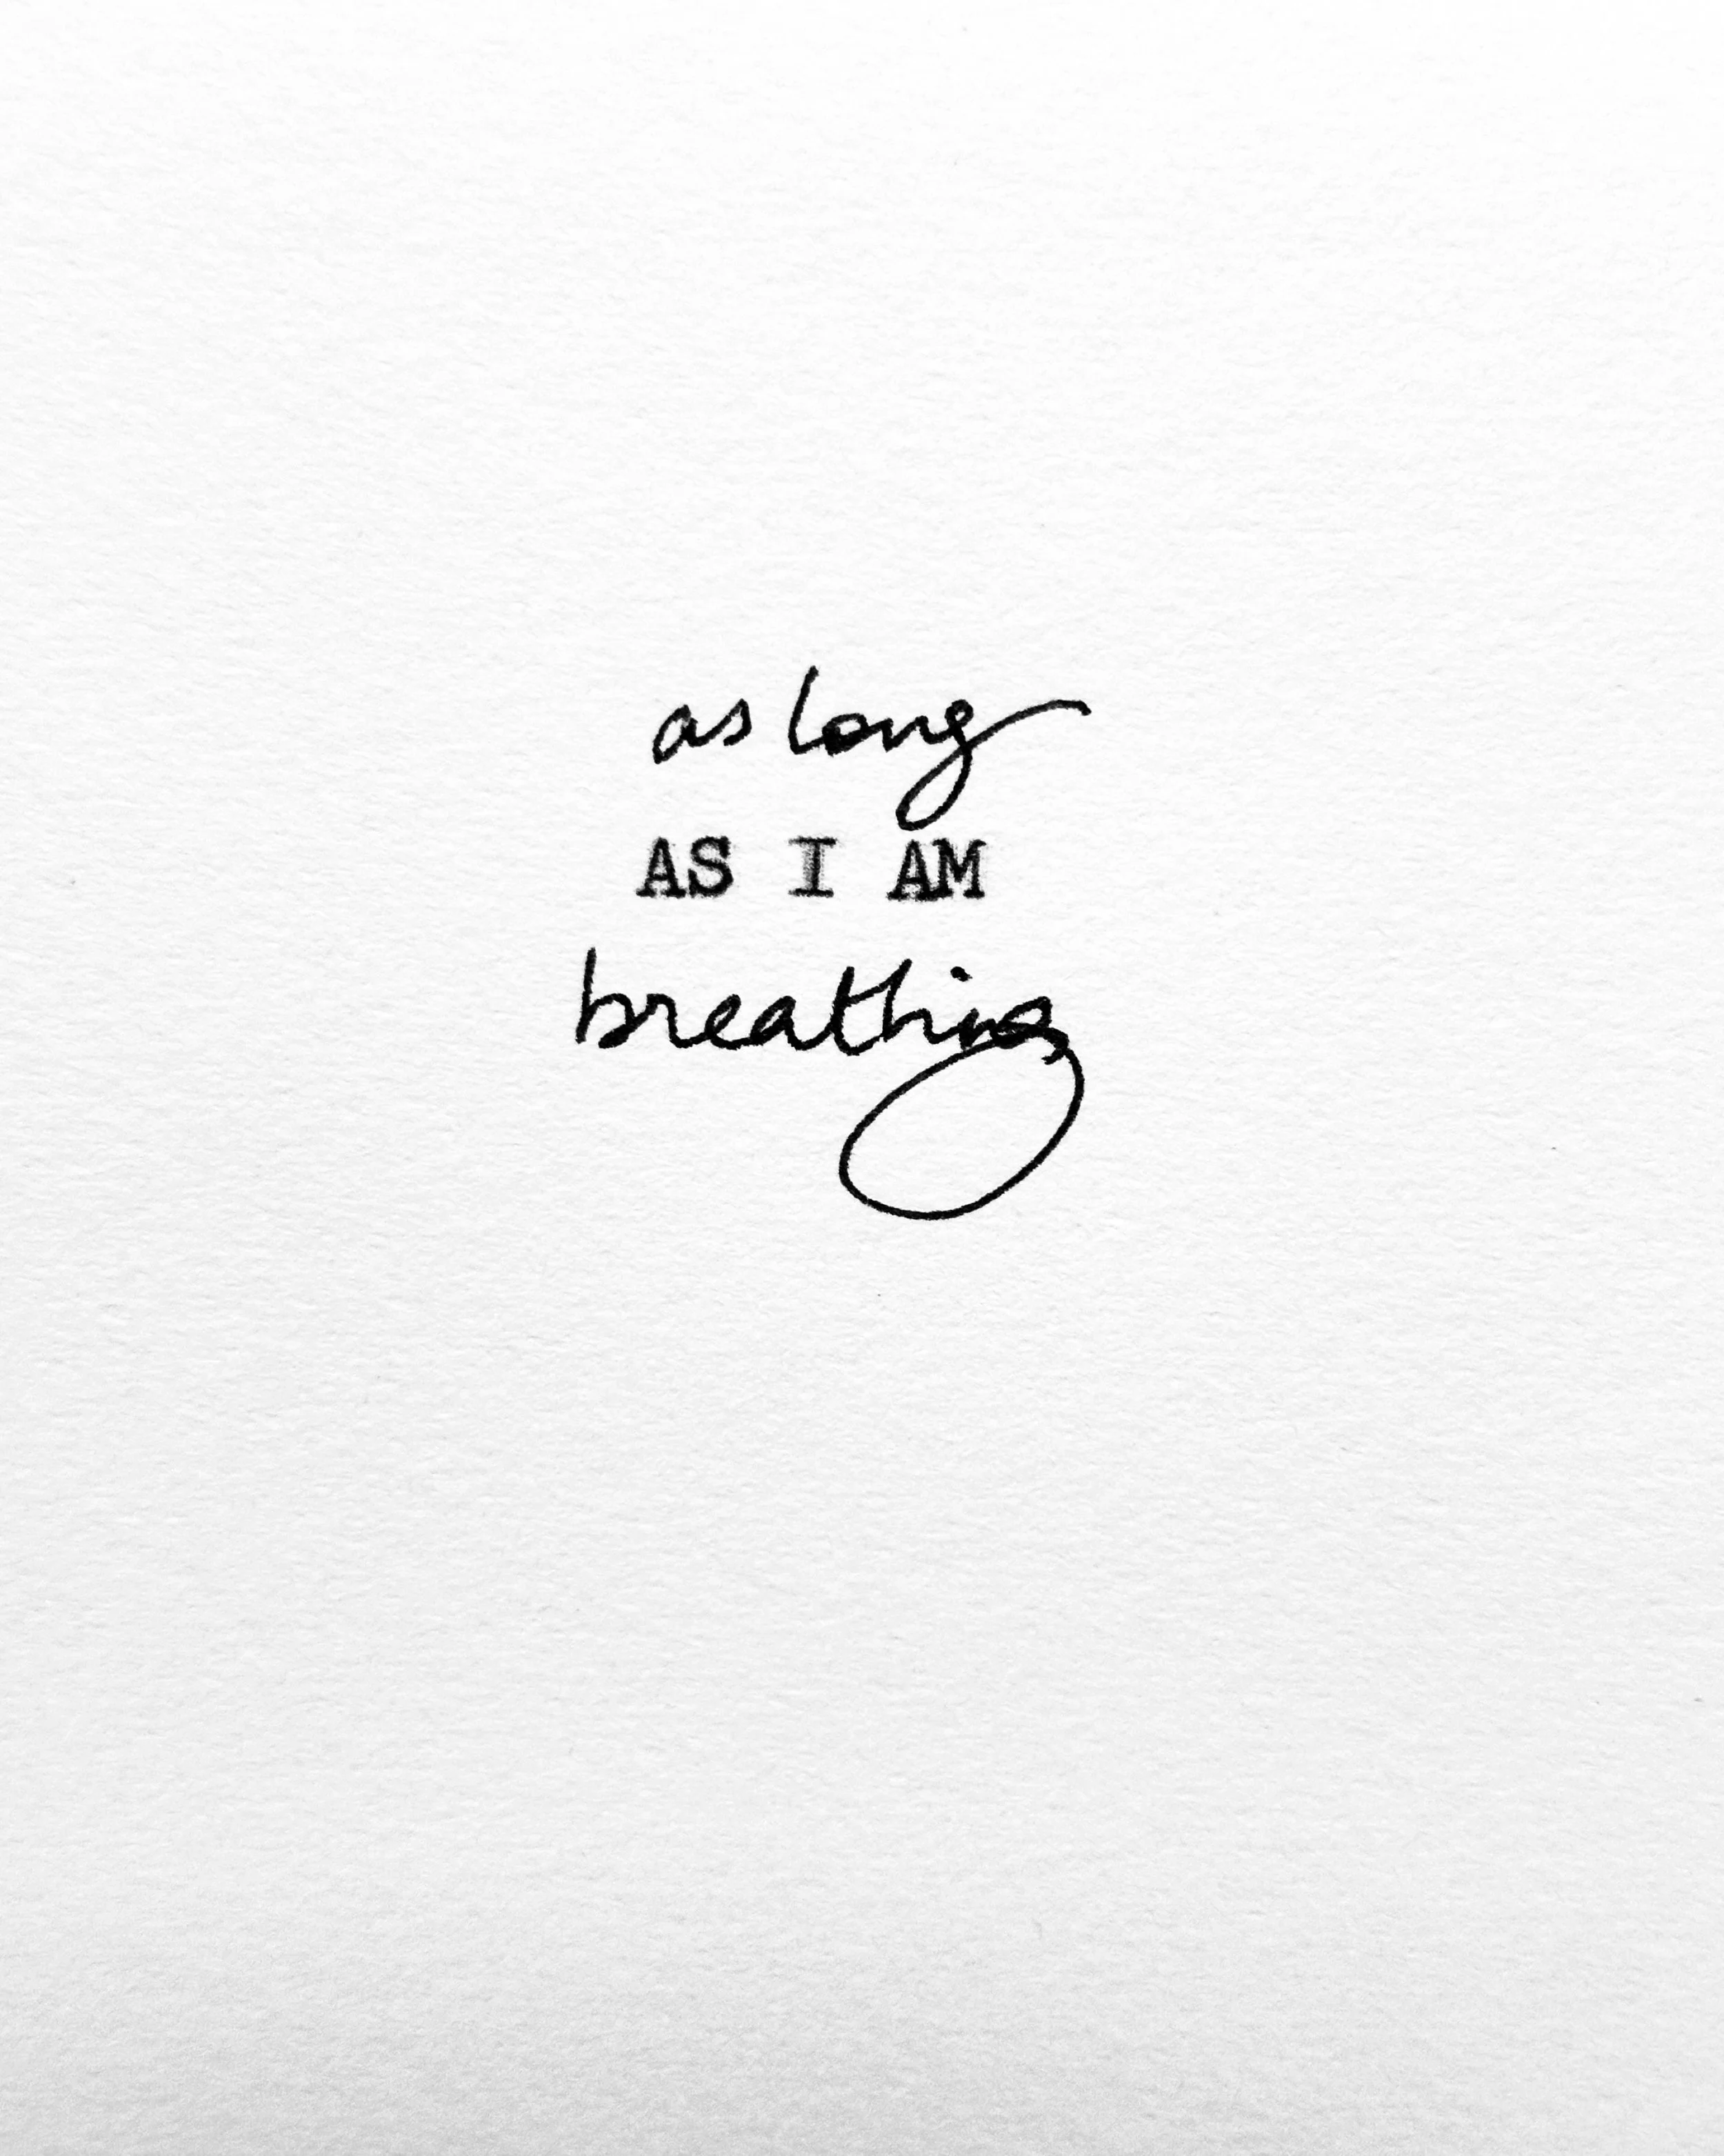 as long
AS I AM
breathing